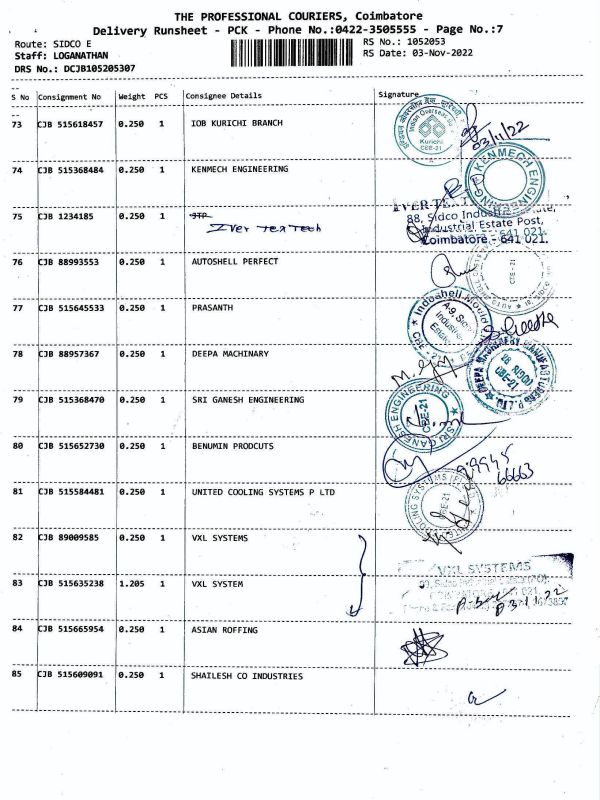 THE PROFESSIONAL COURIERS, Coimbatore
Delivery Runsheet - PCK - Phone No.:0422-3505555 - Page No.:7
Route: SIDCO E
RS No.: 1052053
Staff: LOGANATHAN
RS Date: 03-Nov-2022
DRS No.: DCJB105205307
S No Consignment No Weight PCS Consignee Details Signature
73 CJB 515618457 0.250 1 IOB KURICHI BRANCH
Kurichi
CBE-21
03/11/22
74 CJB 515368484 0.250 1 KENMECH ENGINEERING
KENMECH ENGINEERING
75 CJB 1234185 0.250 1 STP
Iver Tex Tech
88, Sidco Industrial Estate,
Industrial Estate Post,
Coimbatore - 641 021.
76 CJB 88993553 0.250 1 AUTOSHELL PERFECT
CBE - 21
77 CJB 515645533 0.250 1 PRASANTH
Indoshell Mould
A-9, Sidco
Industrial
Estate
CBE - 21
78 CJB 88957367 0.250 1 DEEPA MACHINARY
DEEPA MACHINERY MANUFACTURERS P.LTD.
CBE-21
79 CJB 515368470 0.250 1 SRI GANESH ENGINEERING
SRI GANESH ENGINEERING
CBE-21
80 CJB 515652730 0.250 1 BENUMIN PRODCUTS
99945
66663
81 CJB 515584481 0.250 1 UNITED COOLING SYSTEMS P LTD
COOLING SYSTEMS (P)
CBE-21
82 CJB 89009585 0.250 1 VXL SYSTEMS
VXL SYSTEMS
83 CJB 515635238 1.205 1 VXL SYSTEM
84 CJB 515665954 0.250 1 ASIAN ROFFING
85 CJB 515609091 0.250 1 SHAILESH CO INDUSTRIES